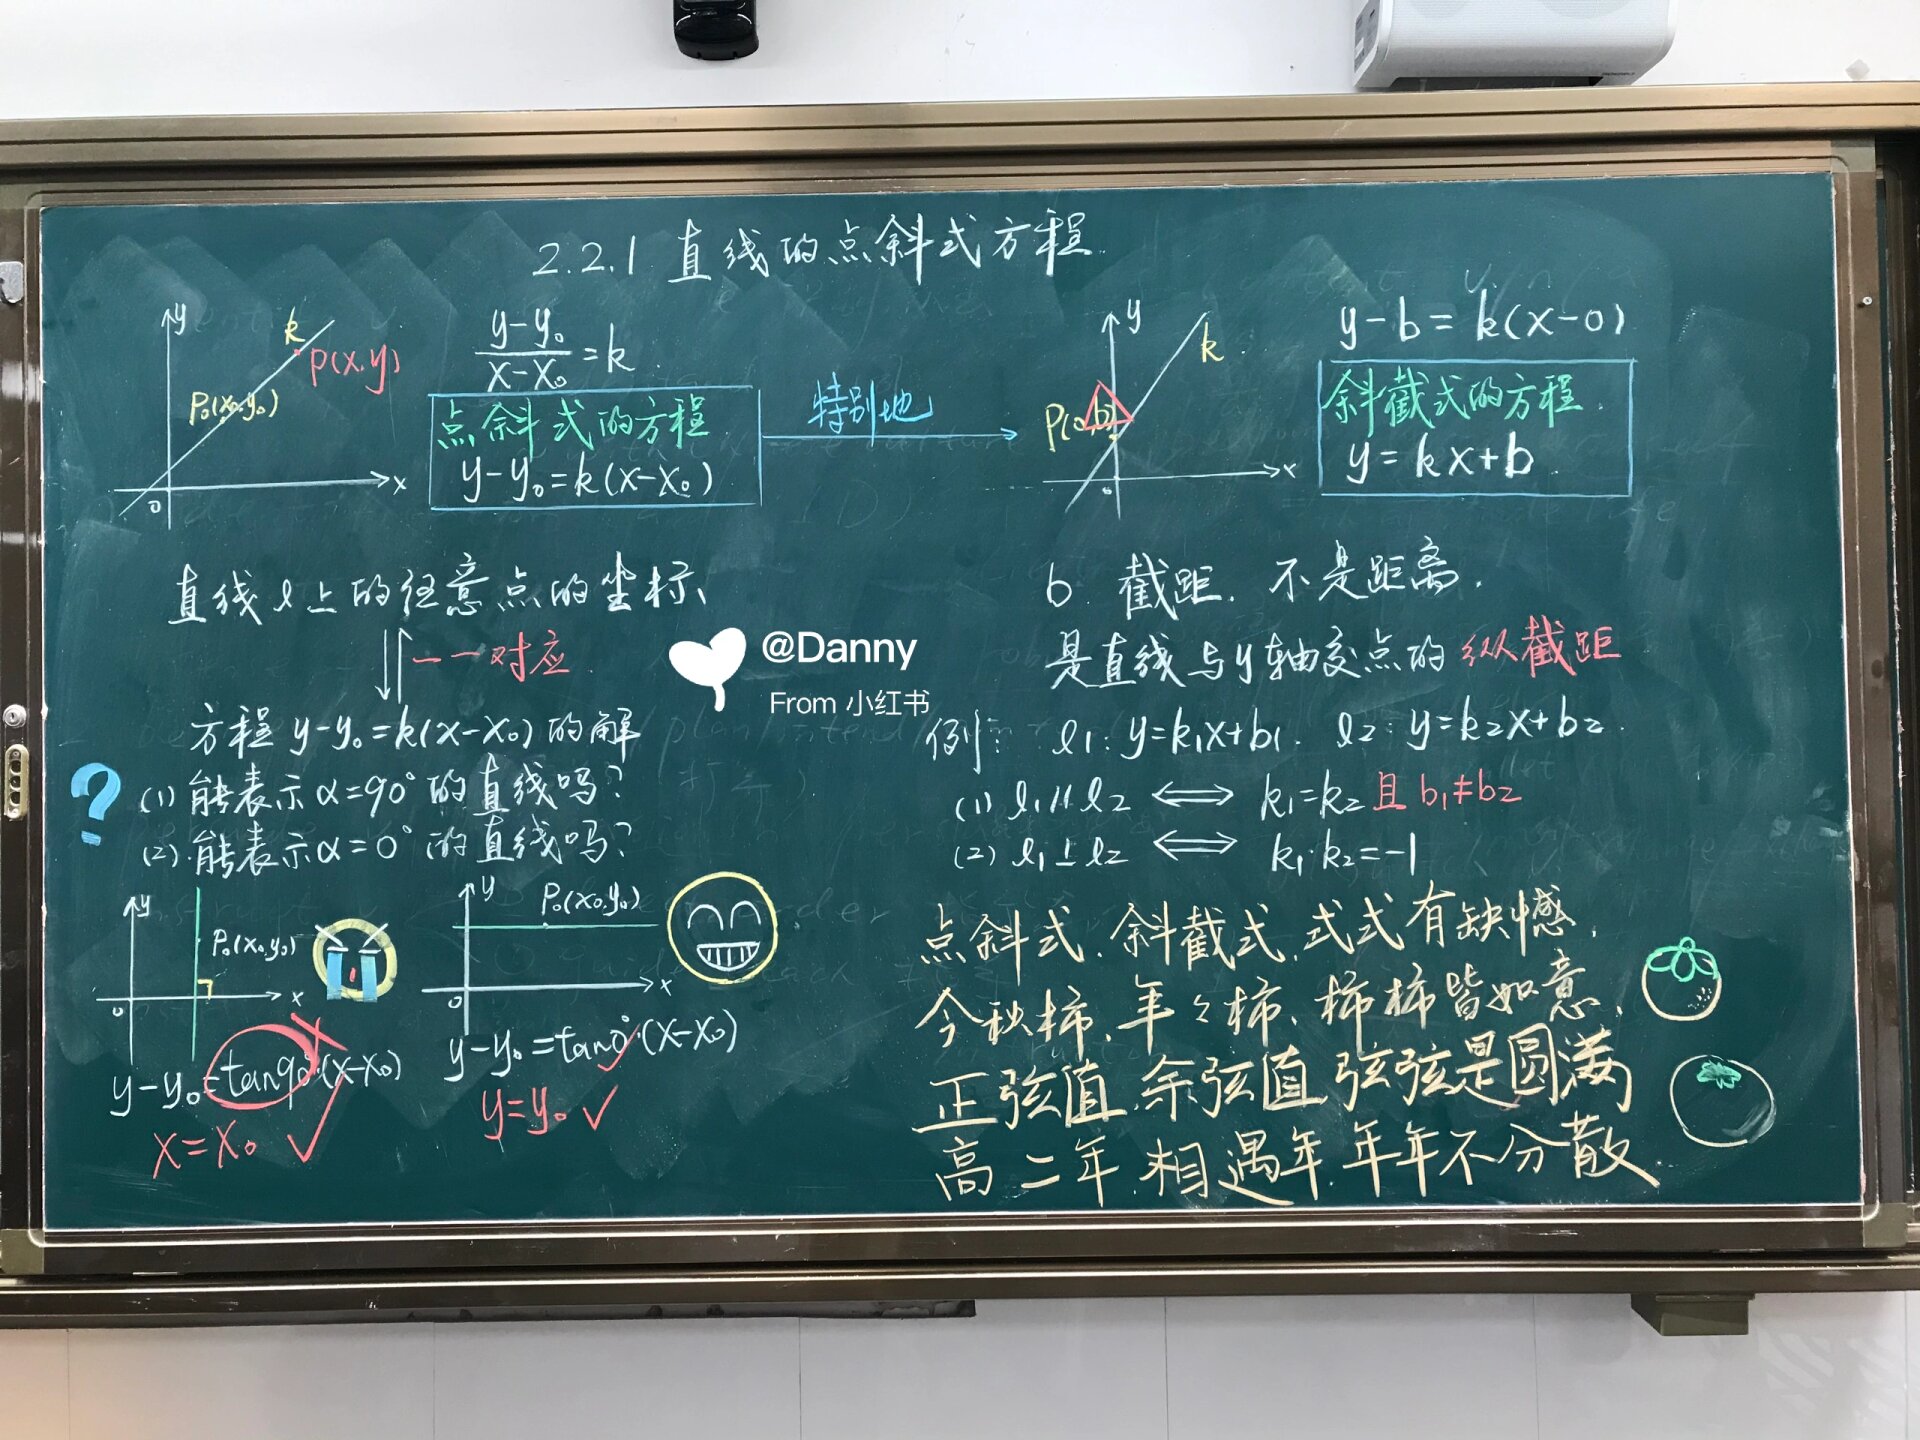 2.2.1 直线的点斜式方程
y
k
P(x,y)
P₀(x₀,y₀)
x
0
(y-y₀)/(x-x₀)=k
点斜式的方程
y-y₀=k(x-x₀)
特别地
y
k
P(0,b)
x
0
y-b=k(x-0)
斜截式的方程
y=kx+b
直线l上的任意点的坐标
一一对应
方程y-y₀=k(x-x₀)的解
?
(1)能表示α=90°的直线吗?
(2).能表示α=0°的直线吗?
y
P₀(x₀,y₀)
x
0
y-y₀=tan90°(x-x₀)
x=x₀ ✓
y
P₀(x₀,y₀)
x
0
y-y₀=tan0°(x-x₀)
y=y₀ ✓
@Danny
From 小红书
b. 截距. 不是距离.
是直线与y轴交点的纵截距
例: l₁: y=k₁x+b₁. l₂: y=k₂x+b₂.
(1) l₁∥l₂ ⟺ k₁=k₂且b₁≠b₂
(2) l₁⊥l₂ ⟺ k₁·k₂=-1
点斜式.斜截式.式式有缺憾.
今秋柿.年々柿.柿柿皆如意.
正弦值.余弦值弦弦是圆满
高二年.相遇年.年年不分散